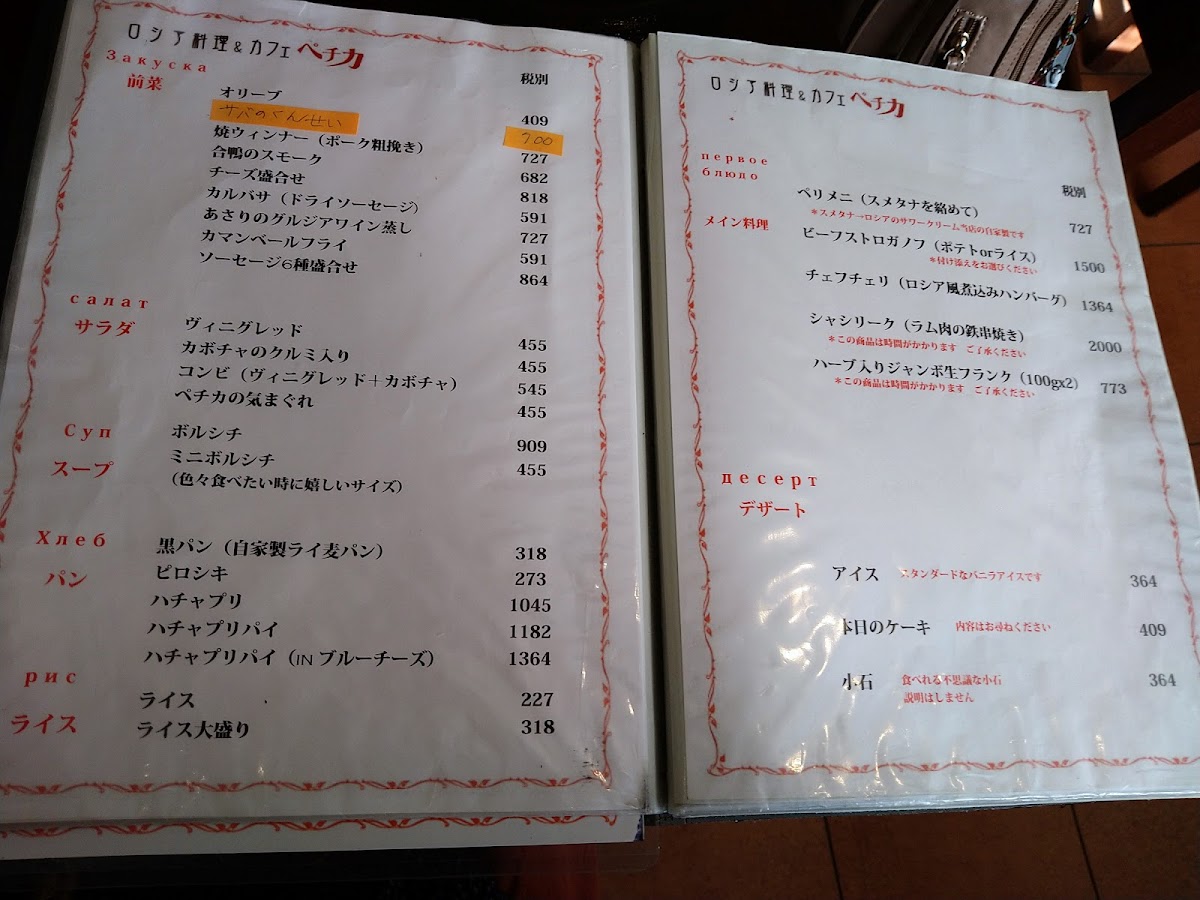 ロシア料理&カフェ ペチカ
Закуска
前菜
税別
オリーブ 409
サバのくんせい 700
焼ウィンナー（ポーク粗挽き） 727
合鴨のスモーク 682
チーズ盛合せ 818
カルバサ（ドライソーセージ） 591
あさりのグルジアワイン蒸し 727
カマンベールフライ 591
ソーセージ6種盛合せ 864
салат
サラダ
ヴィニグレッド 455
カボチャのクルミ入り 455
コンビ（ヴィニグレッド＋カボチャ） 545
ペチカの気まぐれ 455
Суп
スープ
ボルシチ 909
ミニボルシチ 455
（色々食べたい時に嬉しいサイズ）
Хлеб
パン
黒パン（自家製ライ麦パン） 318
ピロシキ 273
ハチャプリ 1045
ハチャプリパイ 1182
ハチャプリパイ（IN ブルーチーズ） 1364
рис
ライス
ライス 227
ライス大盛り 318
ロシア料理&カフェ ペチカ
первое
блюдо
メイン料理
税別
ペリメニ（スメタナを絡めて） 727
＊スメタナ→ロシアのサワークリーム当店の自家製です
ビーフストロガノフ（ポテトorライス） 1500
＊付け添えをお選びください
チェフチェリ（ロシア風煮込みハンバーグ） 1364
シャシリーク（ラム肉の鉄串焼き） 2000
＊この商品は時間がかかります ご了承ください
ハーブ入りジャンボ生フランク（100gx2） 773
＊この商品は時間がかかります ご了承ください
десерт
デザート
アイス スタンダードなバニラアイスです 364
本日のケーキ 内容はお尋ねください 409
小石 食べれる不思議な小石 364
説明はしません